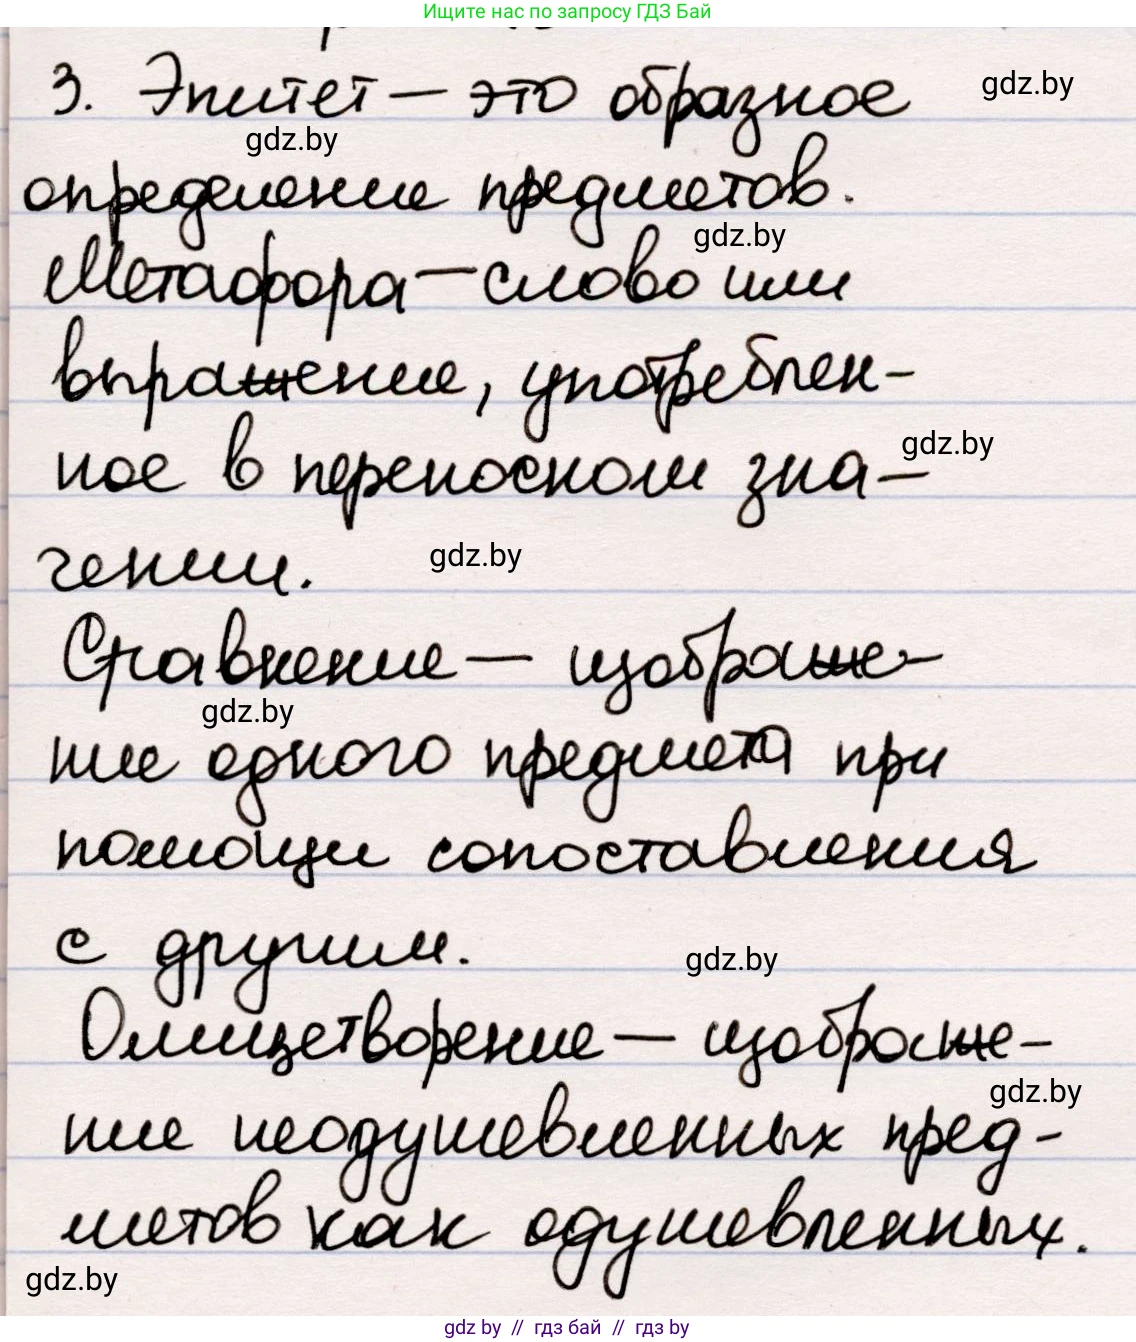 Ищите нас по запросу ГДЗ Бай
3. Эпитет – это образное gdz.by
gdz.by
определение предметов.
gdz.by
Метафора – слово или
выражение, употреблен-
gdz.by
ное в переносном зна-
gdz.by
чении.
Сравнение – изображе-
gdz.by
ние одного предмета при
помощи сопоставления
с другим. gdz.by
Олицетворение – изображе-
gdz.by
ние неодушевленных пред-
метов как одушевленных.
gdz.by
gdz by // гдз бай // gdz by